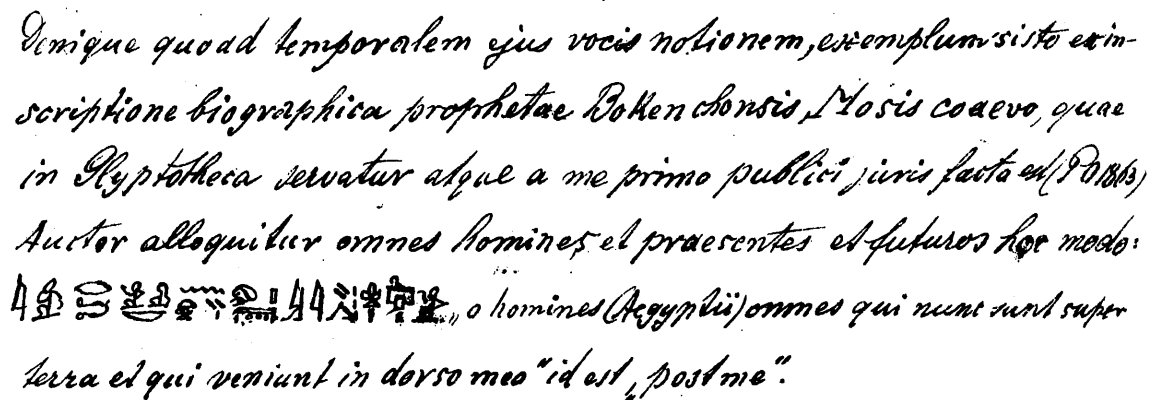 Denique quoad temporalem ejus vocis notionem, exemplum sisto ex in-
scriptione biographica prophetae Bokenchonsis, Mosis coaevo, quae
in Glyptotheca servatur atque a me primo publici juris facta est (1863)
Auctor alloquitur omnes homines, et praesentes et futuros hoc modo:
„o homines (Aegyptii) omnes qui nunc sunt super
terra et qui veniunt in dorso meo" id est „post me".